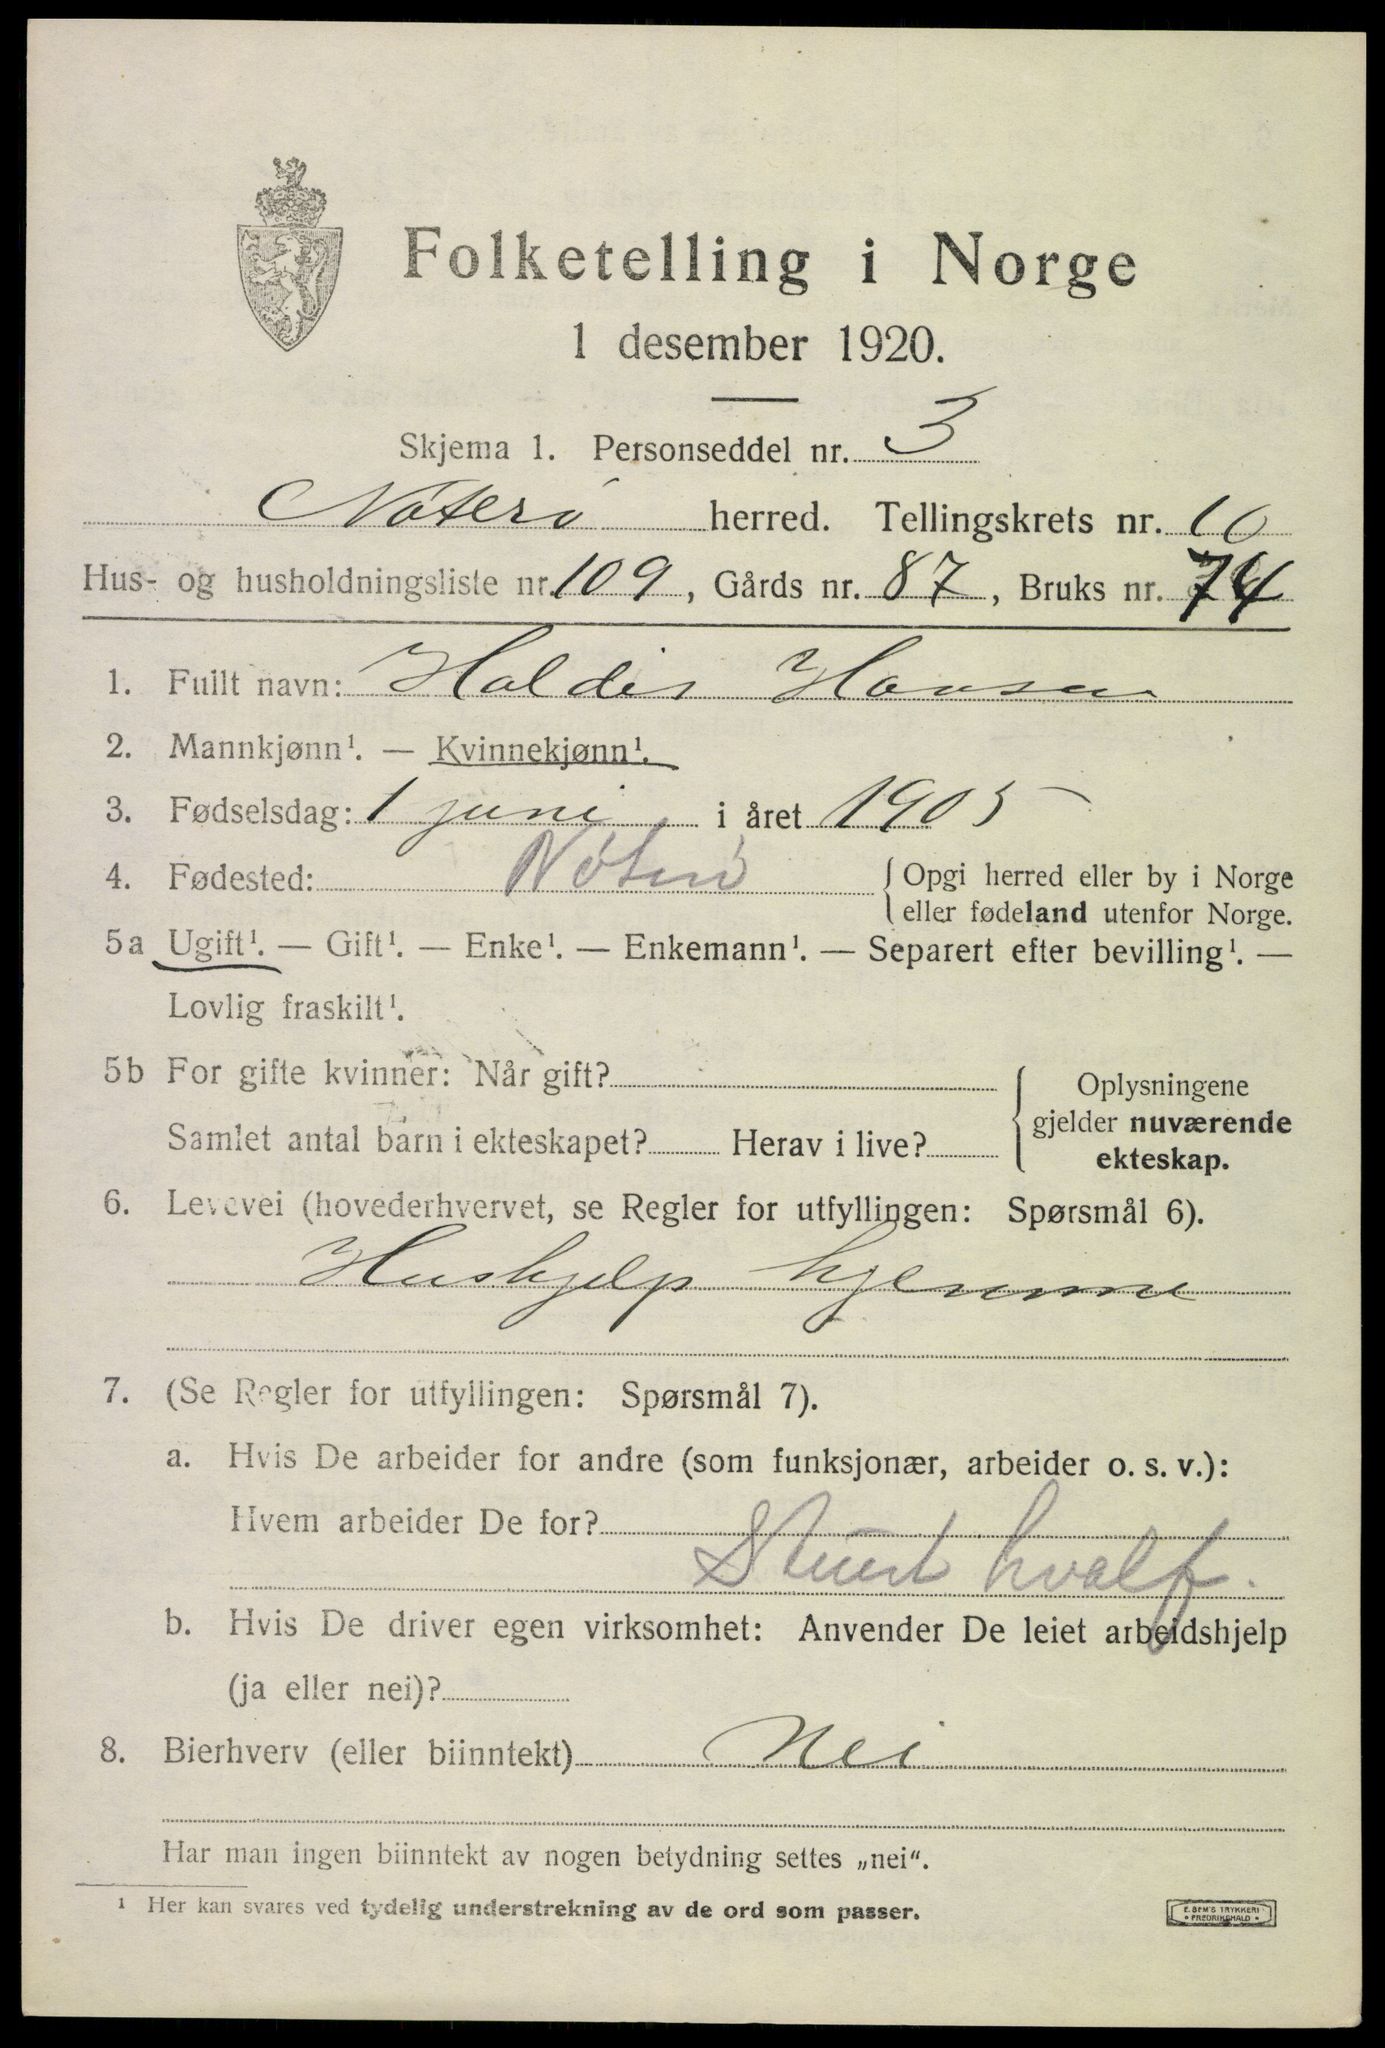 Folketelling i Norge
1 desember 1920.
Skjema 1. Personseddel nr. 3
Nøterø herred. Tellingskrets nr. 10
Hus- og husholdningsliste nr. 109, Gårds nr. 87, Bruks nr. 74
1. Fullt navn: Haldis Hansen
2. Mannkjønn¹. — Kvinnekjønn¹.
3. Fødselsdag: 1 juni i året 1905
4. Fødested: Nøterø { Opgi herred eller by i Norge
eller fødeland utenfor Norge.
5a Ugift¹. — Gift¹. — Enke¹. — Enkemann¹. — Separert efter bevilling¹. —
Lovlig fraskilt¹.
5b For gifte kvinner: Når gift? { Oplysningene
gjelder nuværende
Samlet antal barn i ekteskapet? Herav i live?
ekteskap.
6. Levevei (hovederhvervet, se Regler for utfyllingen: Spørsmål 6).
Hushjelp hjemme
7. (Se Regler for utfyllingen: Spørsmål 7).
a. Hvis De arbeider for andre (som funksjonær, arbeider o. s. v.):
Hvem arbeider De for?
hvalf.
b. Hvis De driver egen virksomhet: Anvender De leiet arbeidshjelp
(ja eller nei)?
8. Bierhverv (eller biinntekt) Nei
Har man ingen biinntekt av nogen betydning settes „nei“.
¹ Her kan svares ved tydelig understrekning av de ord som passer.
E. SEM'S TRYKKERI
• FREDRIKSHALD •